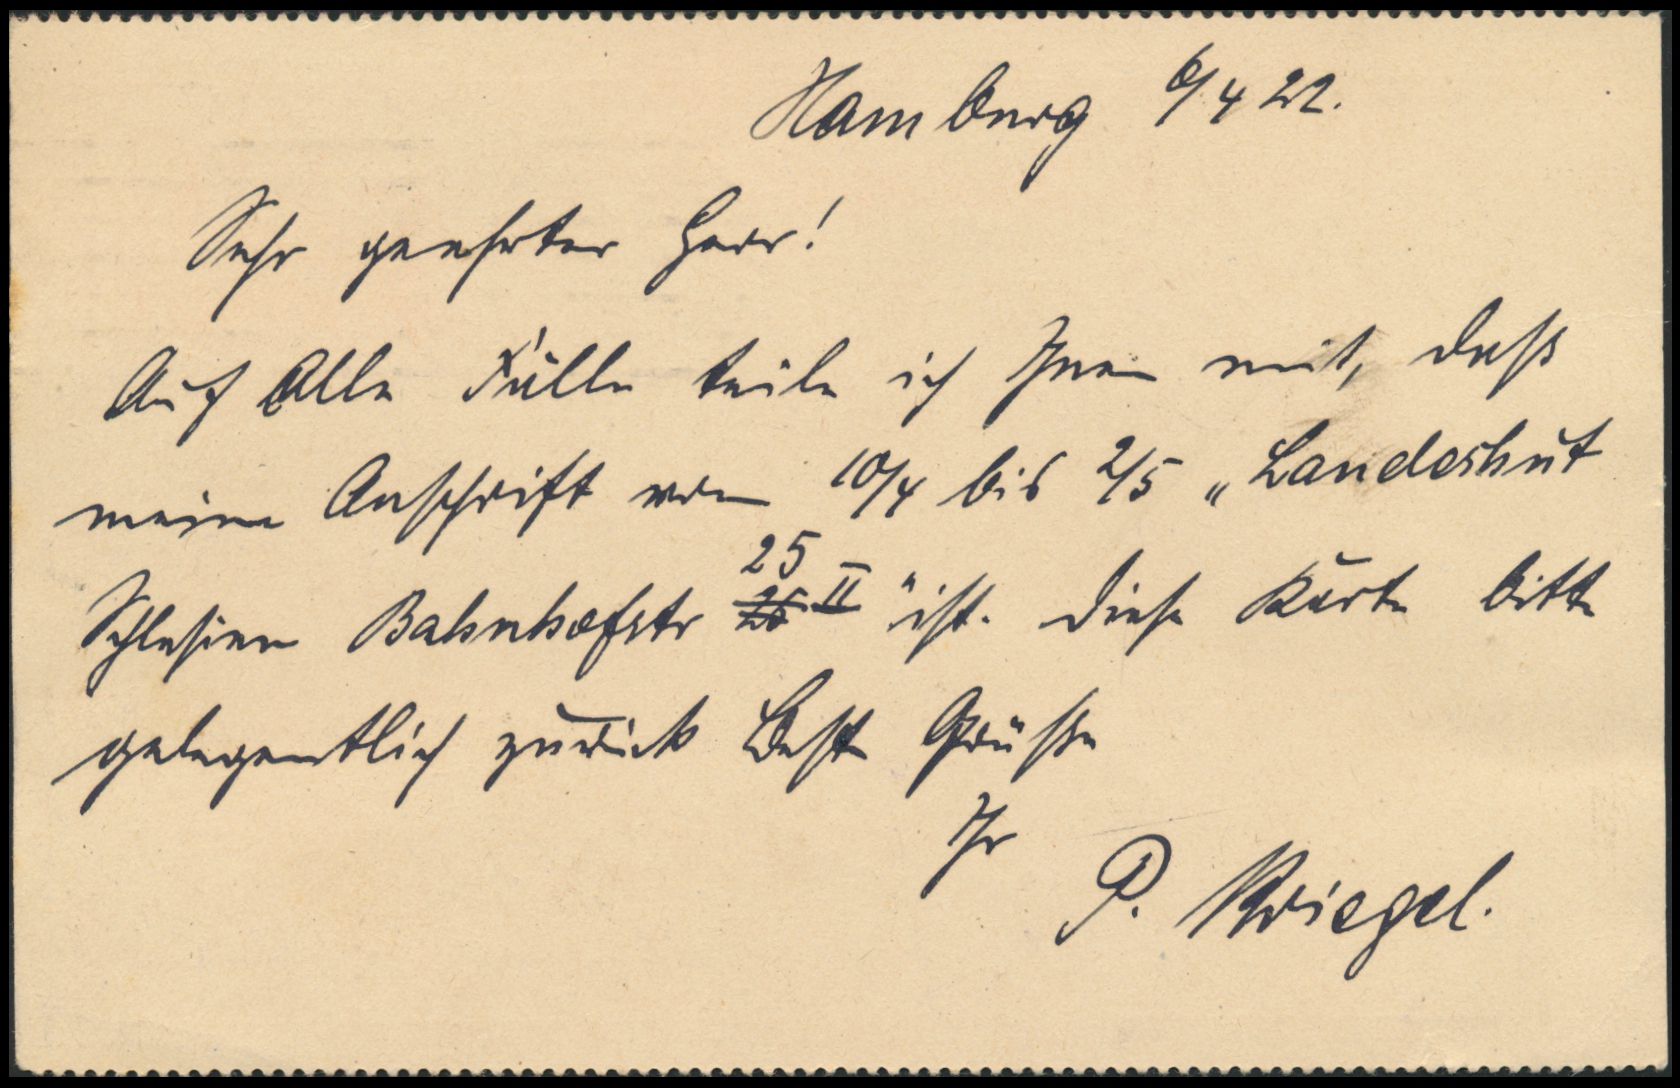 Hamburg 6/4 22.
Sehr geehrter Herr!
Auf Alle Fälle teile ich Ihnen mit, daß
meine Anschrift vom 10/4 bis 2/5 „Landeshut
25
Schlesien Bahnhofstr II" ist. Diese Karte bitte
gelegentlich zurück Beste Grüße
Ihr
P. Kriegel.